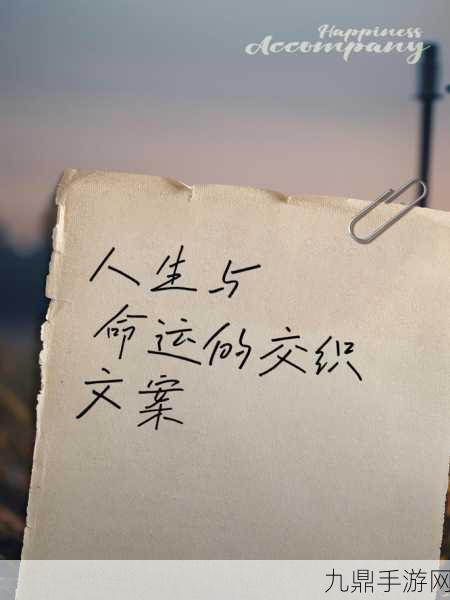 Happiness
Accompany
人生与
命运的交织
文案
九鼎手游网